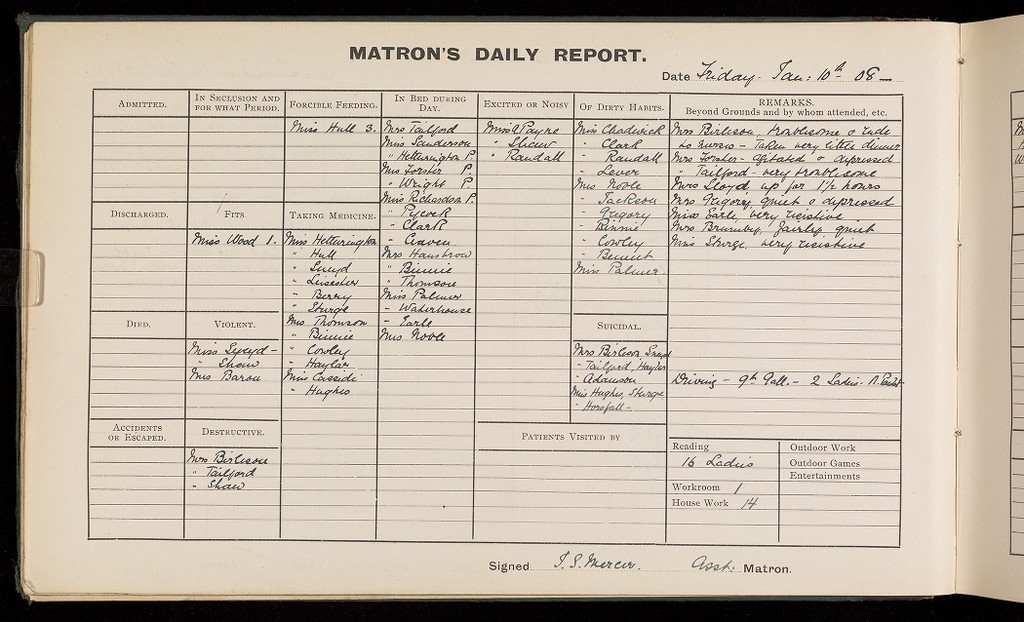 MATRON'S DAILY REPORT.
Date Friday - Jan: 10th 08 -
ADMITTED.
IN SECLUSION AND FOR WHAT PERIOD.
FORCIBLE FEEDING.
Miss Hull 3.
IN BED DURING DAY.
Mrs Tailford
Miss Sanderson
" Hetherington P.
Mrs Forster P.
" Wright P.
Miss Richardson P.
" Pycock
- Clark
- Craven
Mrs Hanstrow
" Binnie
" Thomson
Miss Palmer
- Waterhouse
- Earle
Mrs Noble
EXCITED OR NOISY
Miss A. Payne
" Shaw
" Randall
OF DIRTY HABITS.
Miss Chadwick
- Clark
- Randall
- Lever
Mrs Noble
- Jackson
- Gregory
- Binnie
- Cowley
- Bennet
Miss Palmer.
REMARKS.
Beyond Grounds and by whom attended, etc.
Mrs Birleson, troublesome & rude
to nurses - Taken very little dinner
Mrs Forster - agitated & depressed
" Tailford - very troublesome
Mrs Lloyd, up for 1½ hours
Mrs Gregory, quiet & depressed
Miss Earle, very resistive
Mrs Brumby, fairly quiet
Miss Sturge, very resistive
Driving - 9th Gall. - 2 Ladies.
DISCHARGED.
FITS.
Miss Wood 1.
TAKING MEDICINE.
Miss Hetherington
" Hull
" Lloyd
" Leicester
" Berry
" Sturge
Mrs Thomson
" Binnie
" Cowley
" Haylar
Miss Cassidi
- Hughes
DIED.
VIOLENT.
Miss Lloyd -
" Shaw
Mrs Baron
SUICIDAL.
Mrs Birleson, Lloyd
- Tailford, Haylar
- Adamson
Miss Hughes, Sturge
- Horsfall -
ACCIDENTS OR ESCAPED.
DESTRUCTIVE.
Mrs Birleson
" Tailford
" Shaw
PATIENTS VISITED BY
Reading
16 Ladies
Workroom 1
House Work 14
Outdoor Work
Outdoor Games
Entertainments
Signed J. S. Mercer. Asst. Matron.